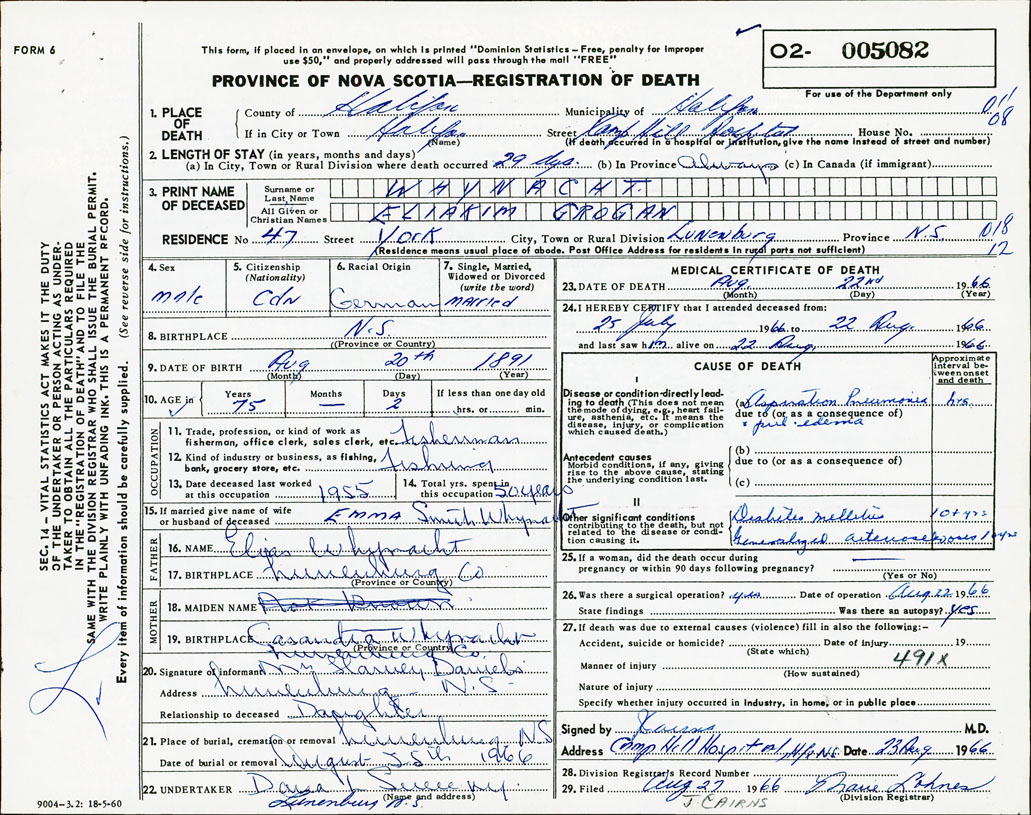 FORM 6
This form, if placed in an envelope, on which is printed "Dominion Statistics – Free, penalty for improper
use $50," and properly addressed will pass through the mail "FREE"
PROVINCE OF NOVA SCOTIA—REGISTRATION OF DEATH
O2- 005082
For use of the Department only
SEC. 14 – VITAL STATISTICS ACT MAKES IT THE DUTY
OF THE UNDERTAKER OR PERSON ACTING AS UNDER-
TAKER TO OBTAIN ALL THE PARTICULARS REQUIRED
IN THE "REGISTRATION OF DEATH" AND TO FILE THE
SAME WITH THE DIVISION REGISTRAR WHO SHALL ISSUE THE BURIAL PERMIT.
WRITE PLAINLY WITH UNFADING INK. THIS IS A PERMANENT RECORD.
Every item of information should be carefully supplied. (See reverse side for instructions.)
1. PLACE OF DEATH
County of Halifax Municipality of Halifax 011
08
If in City or Town Halifax Street Camp Hill Hospital House No.
(Name) (If death occurred in a hospital or institution, give the name instead of street and number)
2. LENGTH OF STAY (in years, months and days)
(a) In City, Town or Rural Division where death occurred 29 dys. (b) In Province Always (c) In Canada (if immigrant)
3. PRINT NAME OF DECEASED
Surname or Last Name WHYNACHT.
All Given or Christian Names ELIAKIM GROGAN
RESIDENCE No 47 Street York City, Town or Rural Division Lunenburg Province N.S. 018
12
(Residence means usual place of abode. Post Office Address for residents in rural parts not sufficient)
4. Sex male
5. Citizenship (Nationality) Cdn
6. Racial Origin German
7. Single, Married, Widowed or Divorced (write the word) married
8. BIRTHPLACE N.S.
(Province or County)
9. DATE OF BIRTH Aug 20th 1891
(Month) (Day) (Year)
10. AGE in Years 75 Months — Days 2 If less than one day old hrs. or min.
OCCUPATION
11. Trade, profession, or kind of work as
fisherman, office clerk, sales clerk, etc. fisherman
12. Kind of industry or business, as fishing,
bank, grocery store, etc. fishing
13. Date deceased last worked
at this occupation 1955
14. Total yrs. spent in
this occupation 50 years
15. If married give name of wife
or husband of deceased Emma Smith Whynacht
FATHER
16. NAME Elijas Whynacht
17. BIRTHPLACE Lunenburg Co
(Province or County)
MOTHER
18. MAIDEN NAME Not Known
19. BIRTHPLACE Casandra Whynacht
(Province or County)
Lunenburg Co.
20. Signature of informant Mrs Harvey Daniels
Address Lunenburg N.S.
Relationship to deceased Daughter
21. Place of burial, cremation or removal Lunenburg NS
Date of burial or removal August 25th 1966
22. UNDERTAKER
(Name and address)
Lunenburg N.S.
9004-3.2: 18-5-60
MEDICAL CERTIFICATE OF DEATH
23. DATE OF DEATH Aug. 22nd 1966
(Month) (Day) (Year)
24. I HEREBY CERTIFY that I attended deceased from:
25 July 1966 to 22 Aug. 1966
and last saw him alive on 22 Aug. 1966
CAUSE OF DEATH
Approximate interval between onset and death
I
Disease or condition directly leading to death (This does not mean the mode of dying, e.g., heart failure, asthenia, etc. It means the disease, injury, or complication which caused death.)
(a) Aspiration Pneumonia hrs.
due to (or as a consequence of)
& pul. edema
Antecedent causes
Morbid conditions, if any, giving rise to the above cause, stating the underlying condition last.
(b)
due to (or as a consequence of)
(c)
II
Other significant conditions
contributing to the death, but not related to the disease or condition causing it.
Diabetes mellitus 10+ yrs
Generalized arteriosclerosis 10 yrs
25. If a woman, did the death occur during
pregnancy or within 90 days following pregnancy? —
(Yes or No)
26. Was there a surgical operation? yes Date of operation Aug. 22 1966
State findings Was there an autopsy? yes
27. If death was due to external causes (violence) fill in also the following:–
Accident, suicide or homicide? Date of injury 19
(State which)
Manner of injury 491X
(How sustained)
Nature of injury
Specify whether injury occurred in industry, in home, or in public place
Signed by J Cairns M.D.
Address Camp Hill Hospital, Hfx. N.S. Date 23 Aug 1966
28. Division Registrar's Record Number
29. Filed Aug 27 1966 Marie Lohnes
(Division Registrar)
J. CAIRNS